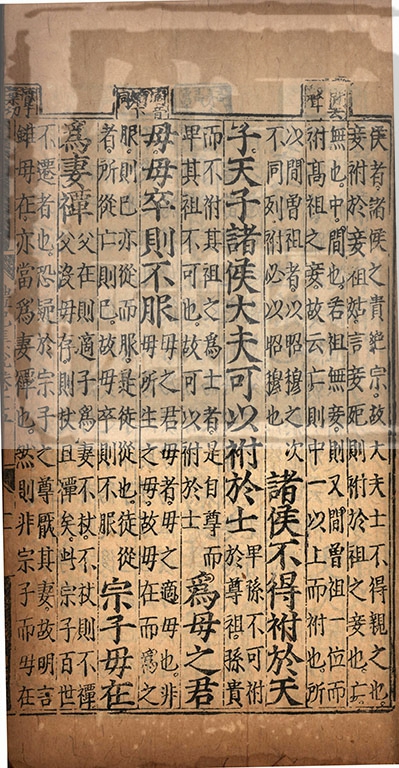 附去聲
侯者。諸侯之貴絕宗。故大夫士不得親之也。
妾祔於妾祖姑。言妾死則祔於祖之妾也。亡
無也。中間也。若祖無妾。則又間曾祖一位而
祔高祖之妾。故云亡則中一以上而祔也。所
以間曾祖者。以昭穆之次
不同列祔必以昭穆也
諸侯不得祔於天
子天子諸侯大夫可以祔於士
卑孫不可祔
於尊祖。孫貴
而不祔其祖之為士者。是自尊而
卑其祖。不可也。故可以祔於士
為母之君
母母卒則不服
母之君母者。母之適母也。非
母所生之母。故母在而為之
服。則已亦從而服。是徒從也。徒從
者。所從亡則已。故母卒則不服
宗子母在
為妻禫
父在則適子為妻不杖。不杖則不禫
父沒母存則杖且禫矣。此宗子百世
不遷者也。恐疑於宗子之尊厭其妻。故明言
雖母在亦當為妻禫也。然則非宗子而母在